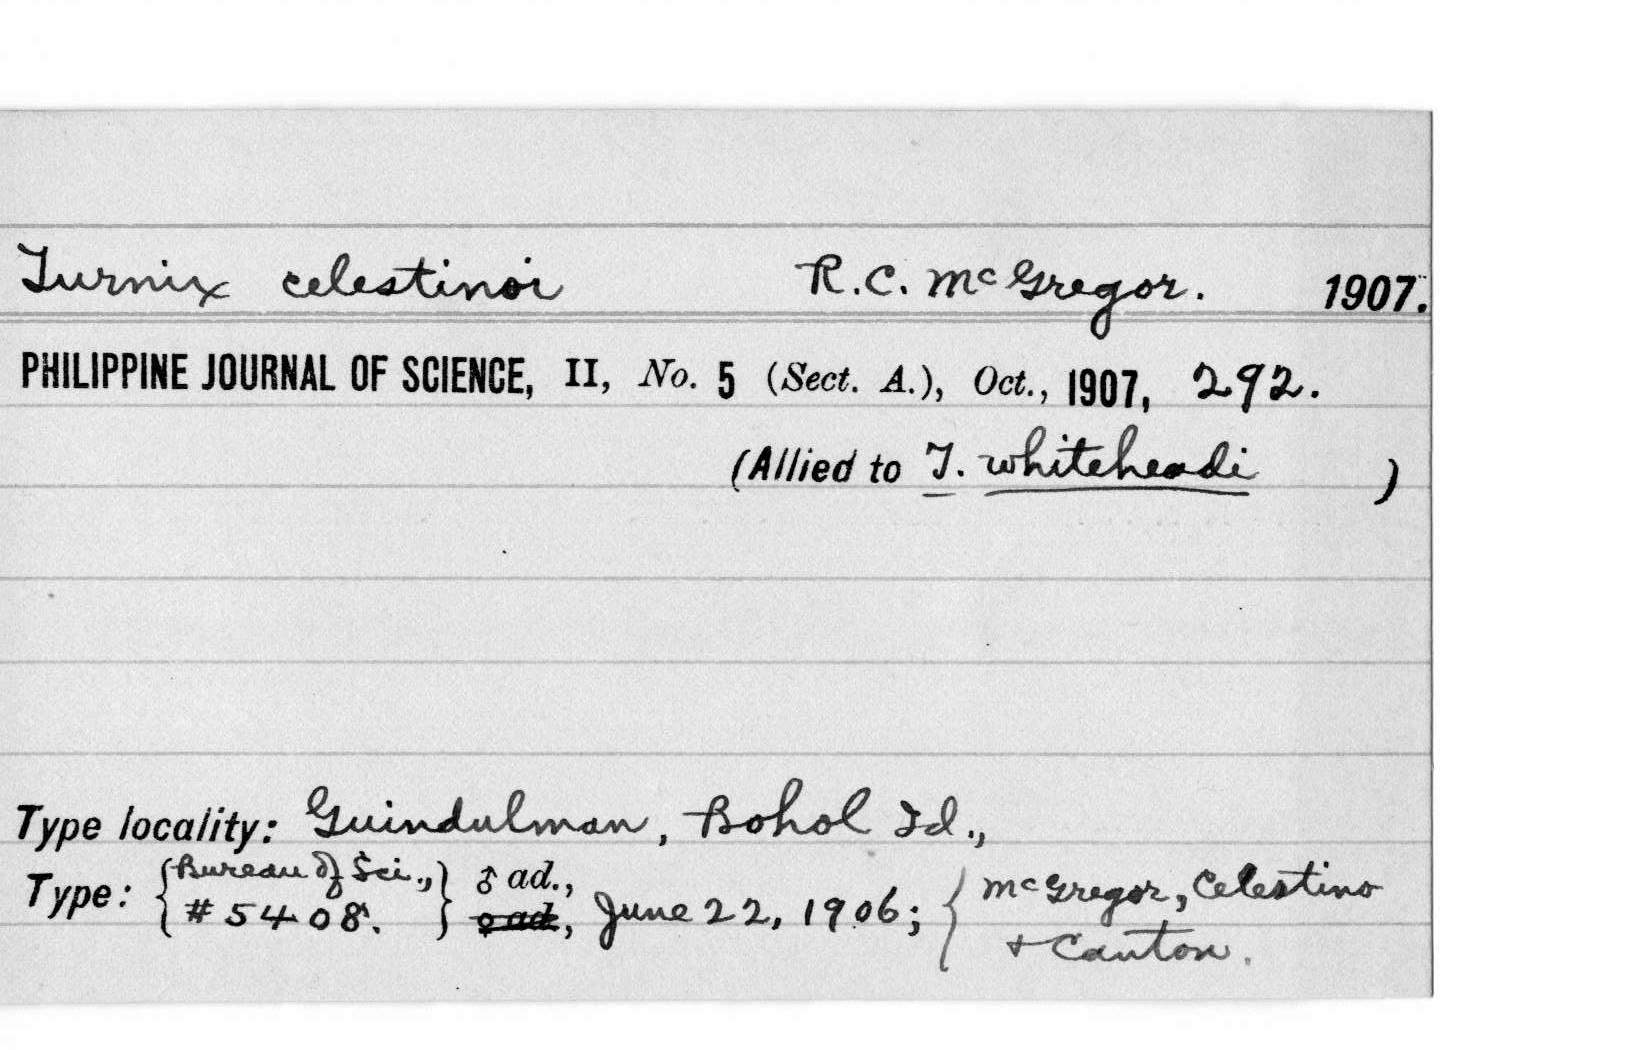 Turnix celestinoi R.C. McGregor. 1907.
PHILIPPINE JOURNAL OF SCIENCE, II, No. 5 (Sect. A.), Oct., 1907, 292.
(Allied to T. whiteheadi )
Type locality: Guindulman, Bohol Id.,
Type: {Bureau of Sci., #5408.} ♂ ad., ♀ ad., June 22, 1906; {McGregor, Celestino
+ Canton.